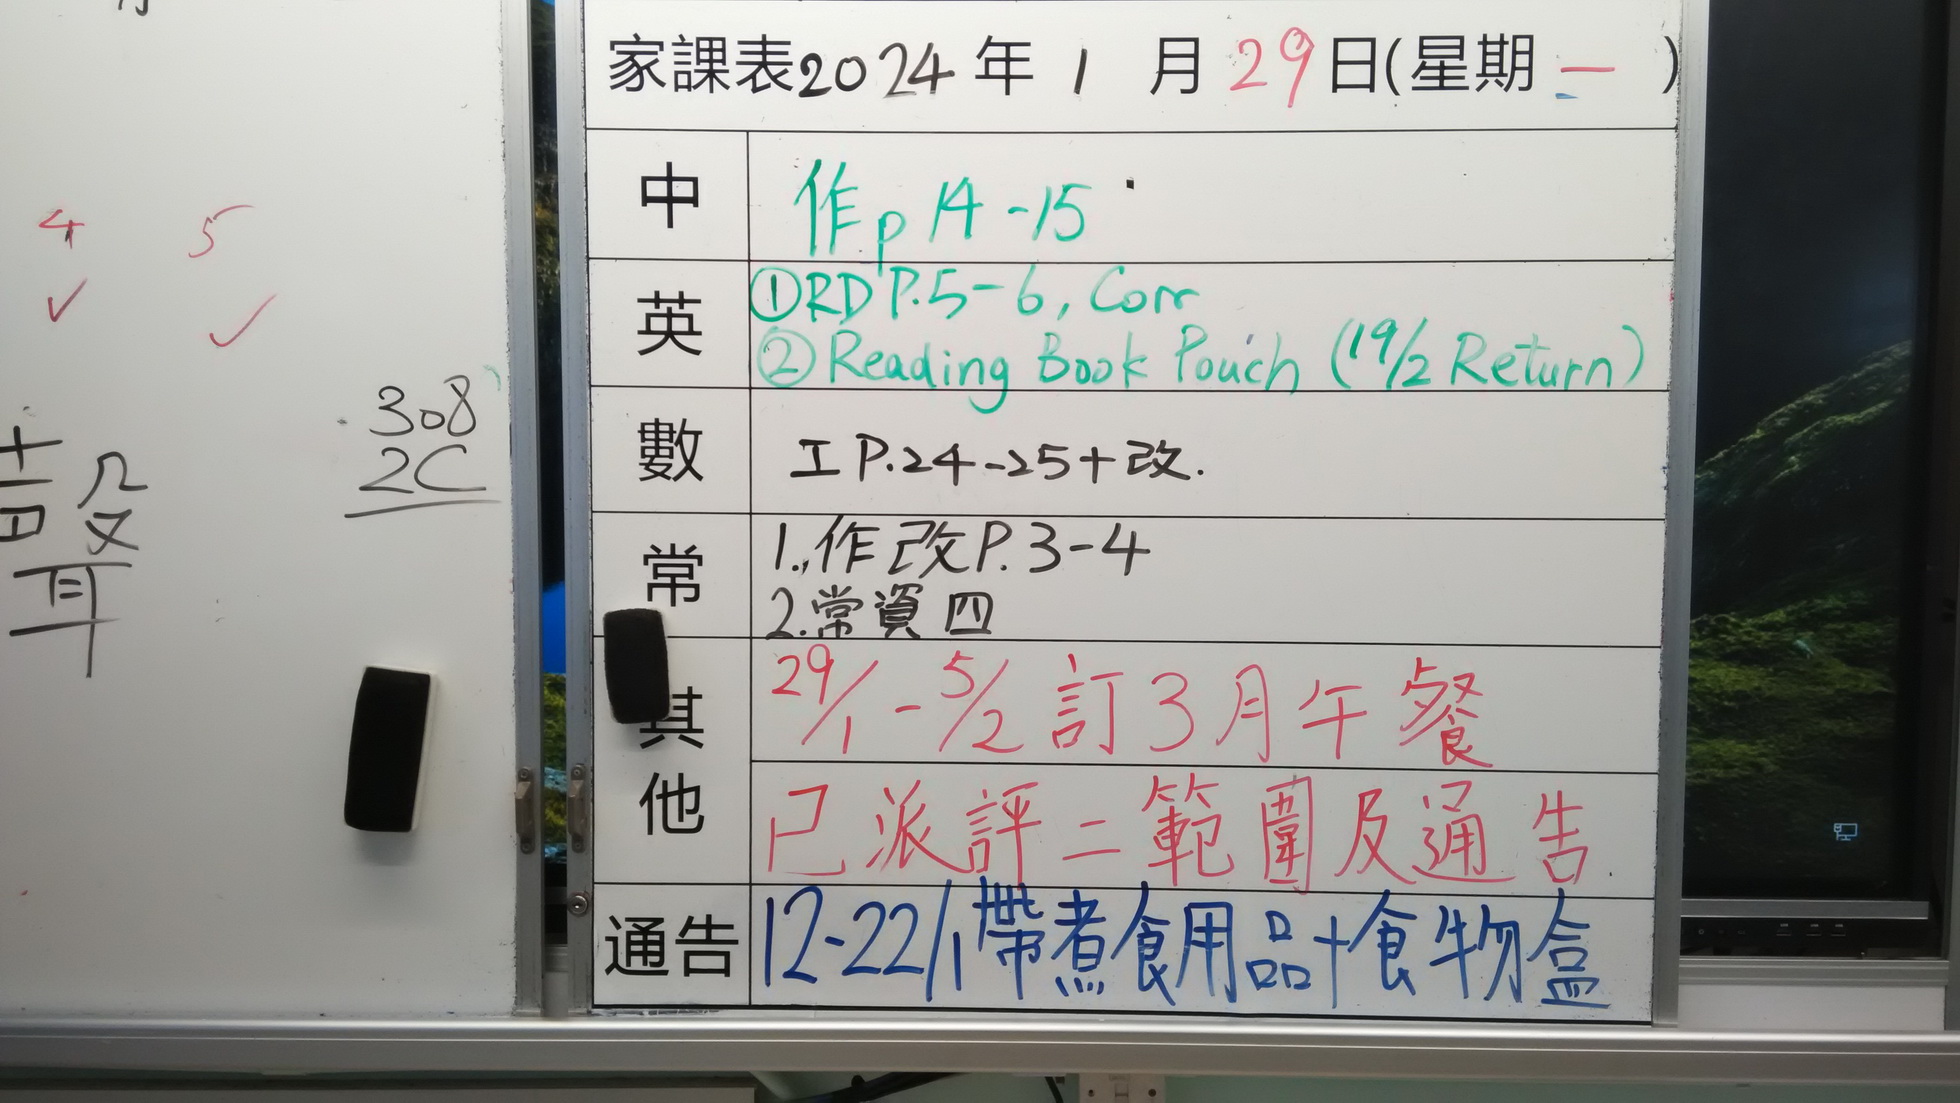 4 5
308
2C
聲
家課表2024年1月29日(星期一)
中 作p14-15
英 ①RD P.5-6, Corr
②Reading Book Pouch (19/2 Return)
數 工P.24-25+改.
常 1.作改P.3-4
2.常資四
其他 29/1-5/2訂3月午餐
已派評二範圍及通告
通告 12-22/1帶煮食用品+食物盒